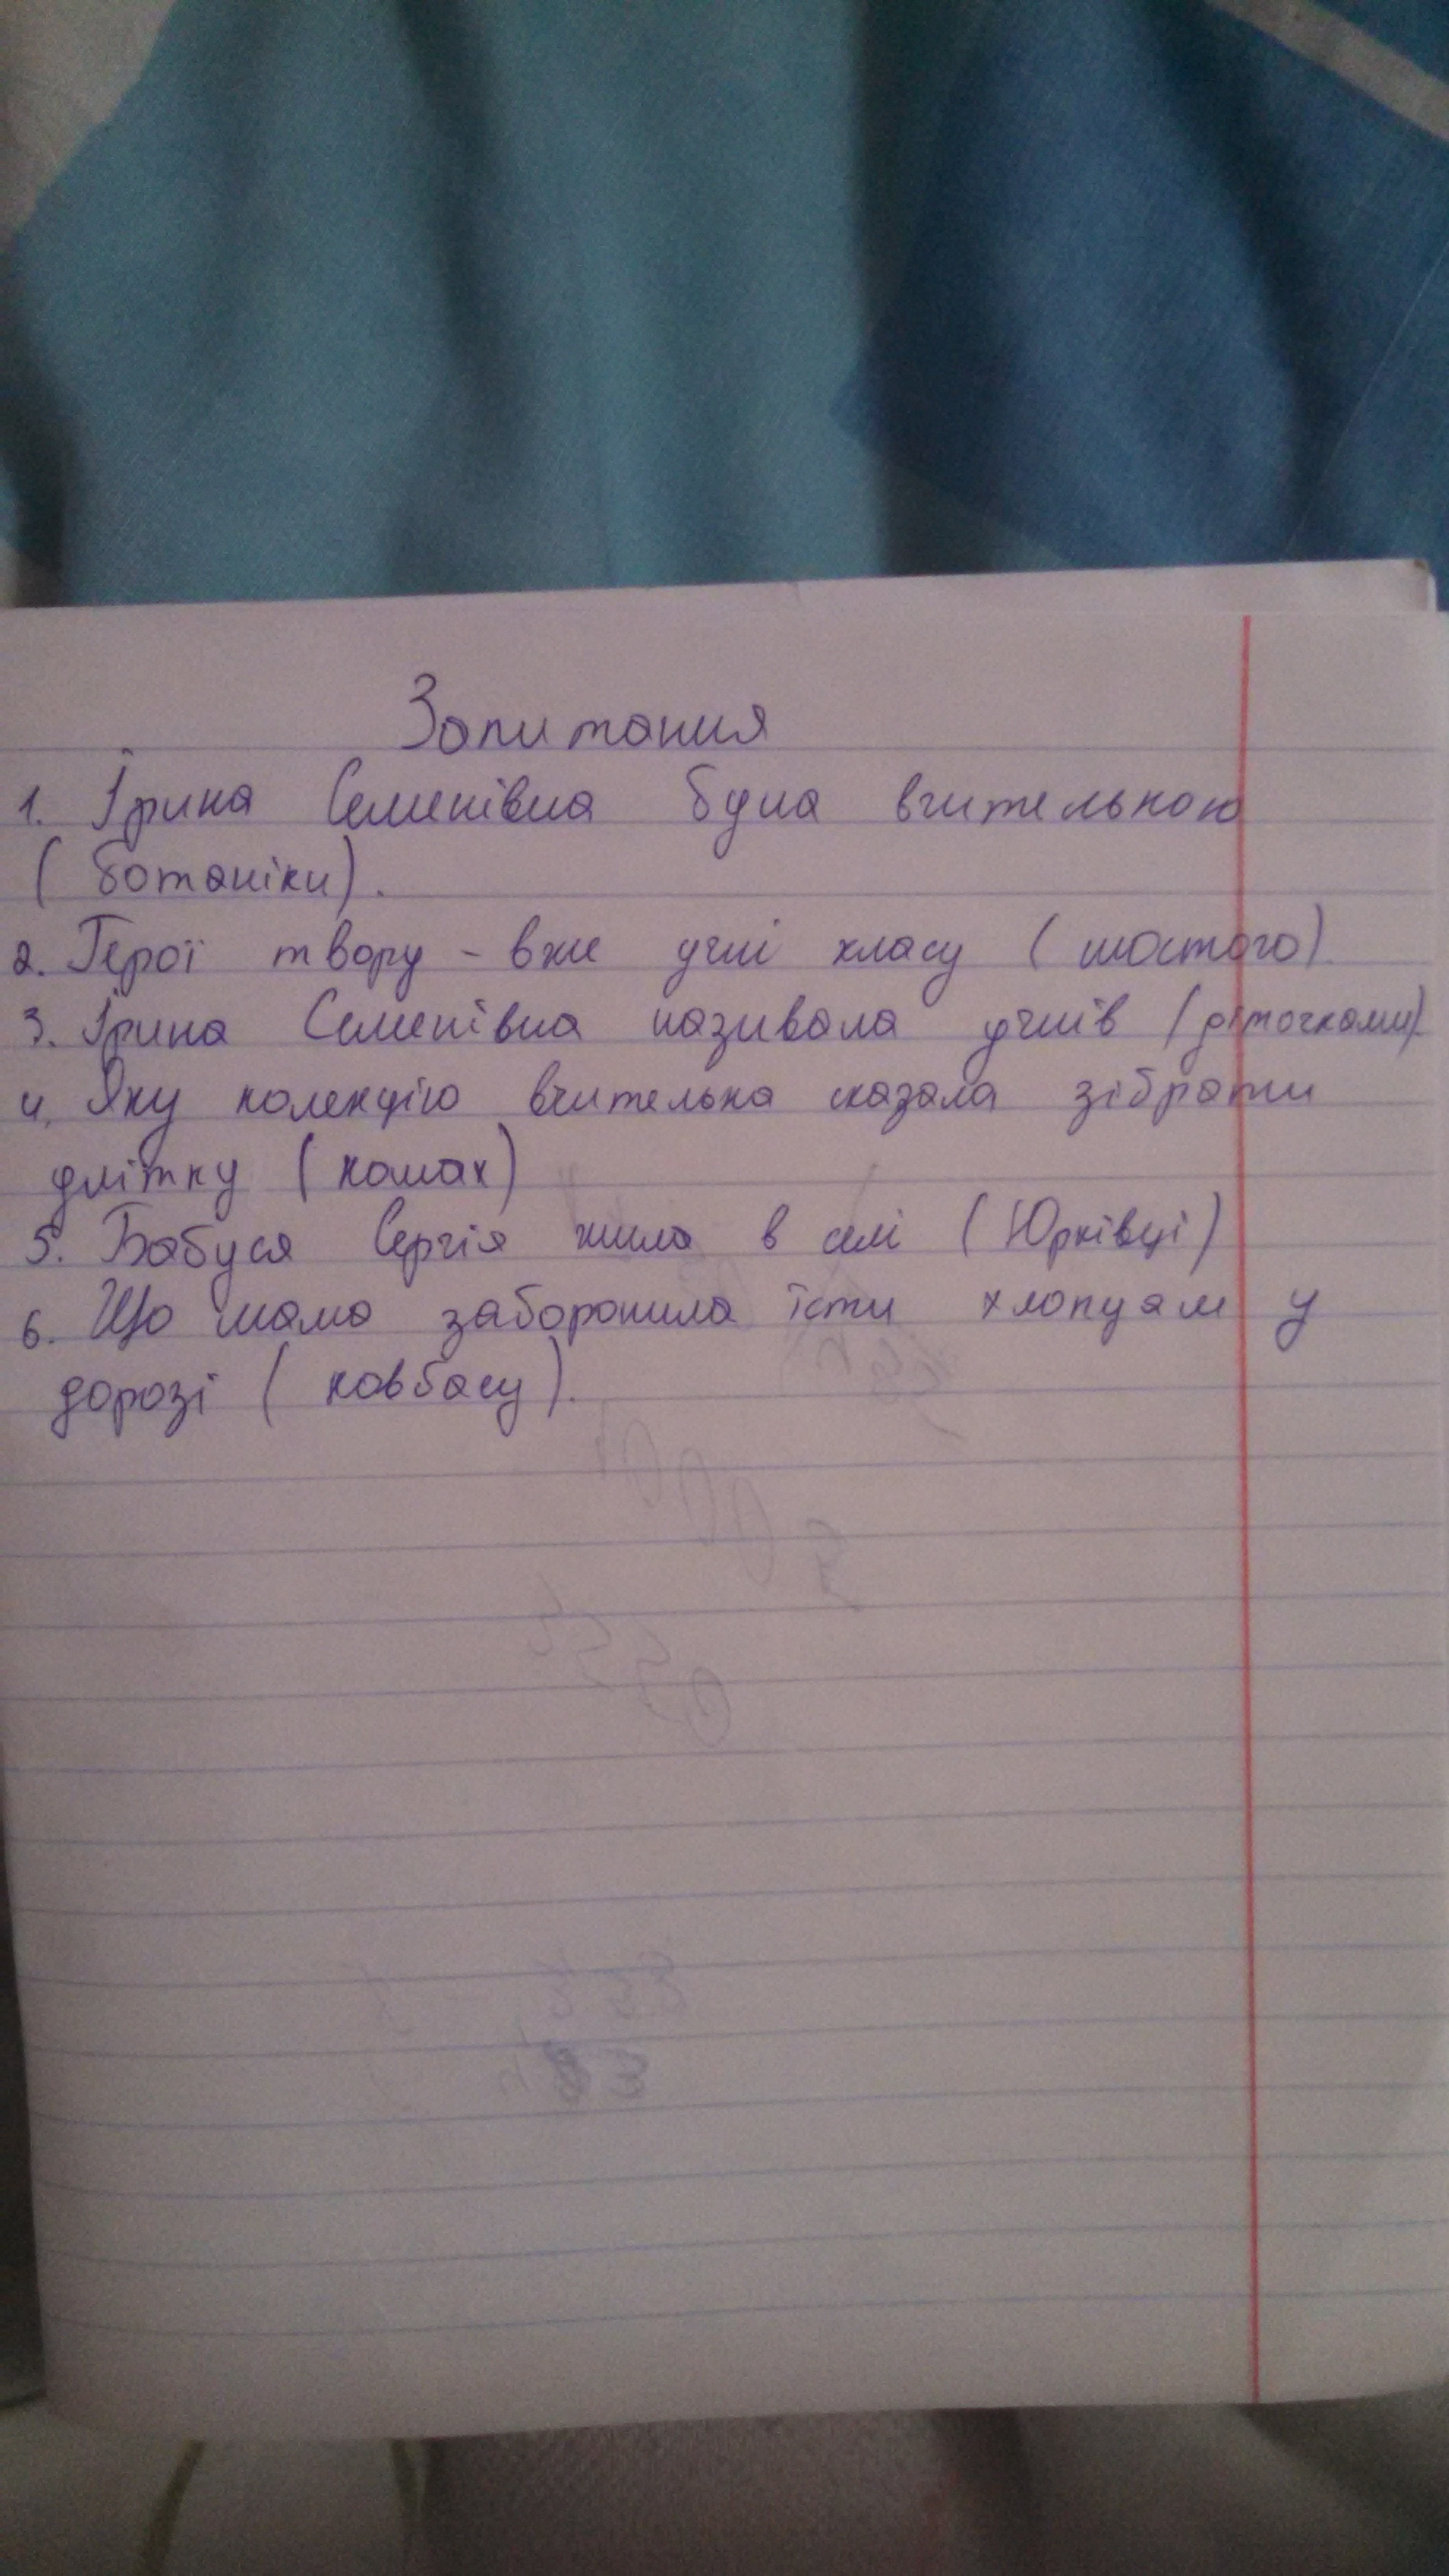 Запитання
1. Ірина Семенівна була вчителькою
( ботаніки).
2. Герої твору - вже учні класу ( шостого)
3. Ірина Семенівна називала учнів (діточками).
4. Яку колекцію вчителька сказала зібрати
улітку ( комах)
5. Бабуся Сергія жила в селі ( Юрківці)
6. Що мама заборонила їсти хлопцям у
дорозі ( ковбасу).